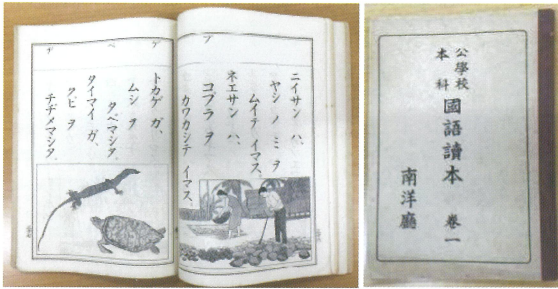 プ
ニイサン ハ、
ヤシ ノ ミ ヲ
ムイテ イマス、
ネエサン ハ、
コプラ ヲ
カワカシテ イマス、
ゲ
ベ
ヂ
トカゲ ガ、
ムシ ヲ
タベマシタ、
タイマイ ガ、
クビ ヲ
チヂメマシタ、
公學校
本科
國語讀本 卷一
南洋廳